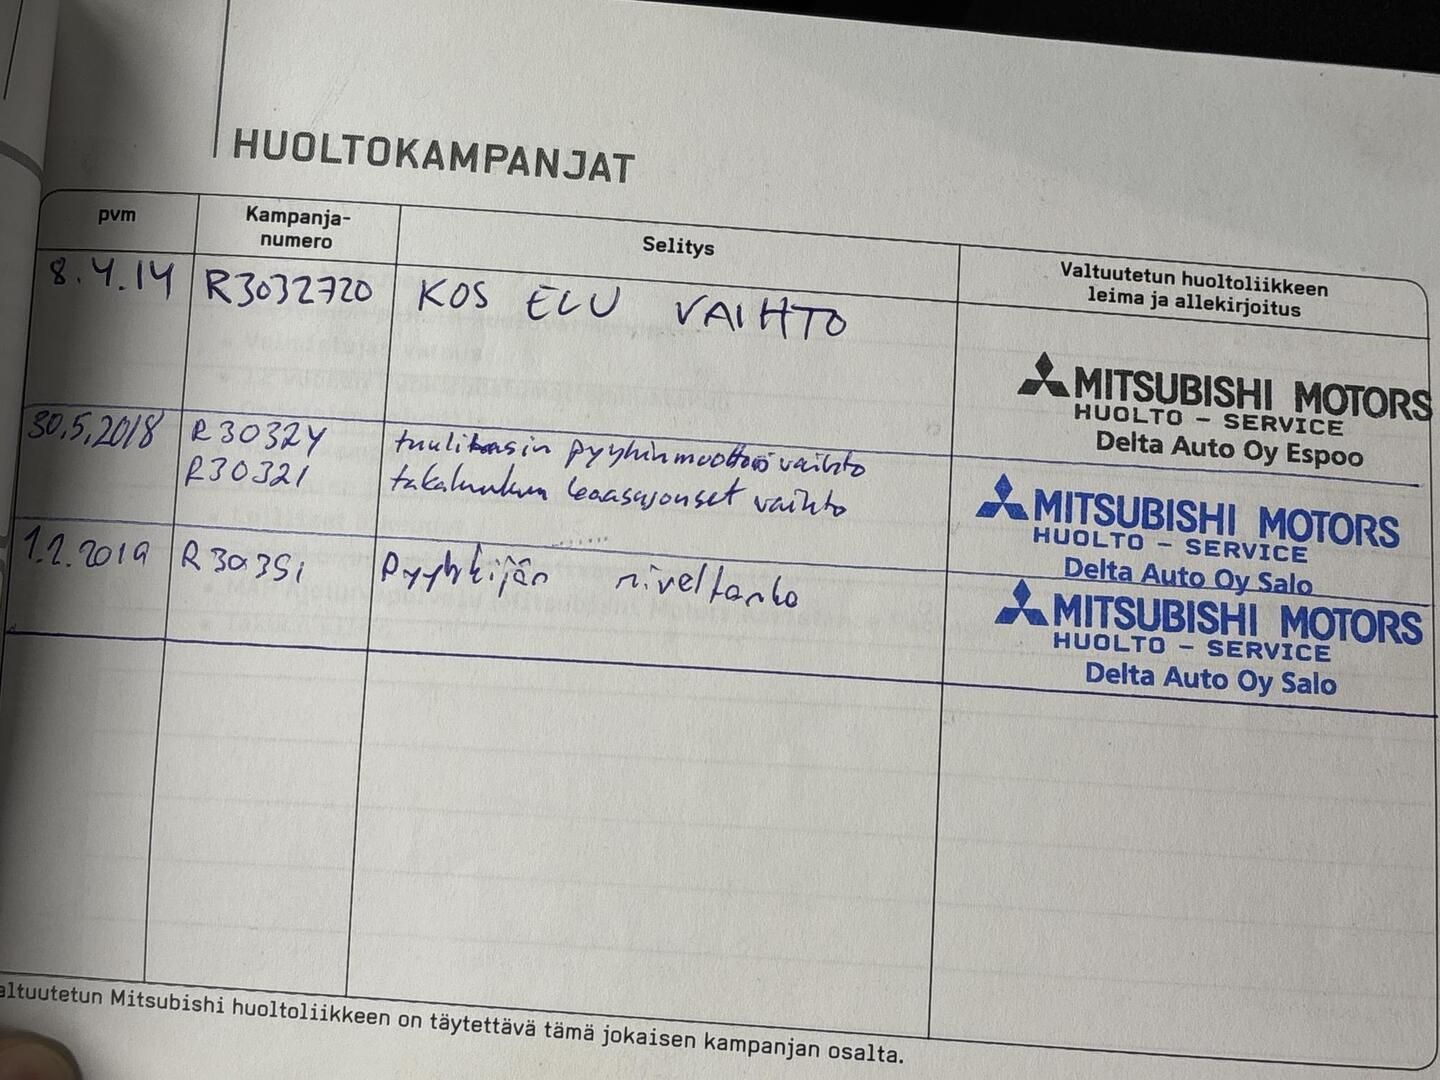 HUOLTOKAMPANJAT
pvm
Kampanja-
numero
Selitys
Valtuutetun huoltoliikkeen
leima ja allekirjoitus
8.4.14 R3032720 KOS ECU VAIHTO
MITSUBISHI MOTORS
HUOLTO - SERVICE
Delta Auto Oy Espoo
30.5.2018 R3032Y tuulilasin pyyhinmoottori vaihto
R30321 takaluukun kaasujouset vaihto
MITSUBISHI MOTORS
HUOLTO - SERVICE
Delta Auto Oy Salo
1.2.2019 Pyyhkijän niveltanko
MITSUBISHI MOTORS
HUOLTO - SERVICE
Delta Auto Oy Salo
altuutetun Mitsubishi huoltoliikkeen on täytettävä tämä jokaisen kampanjan osalta.